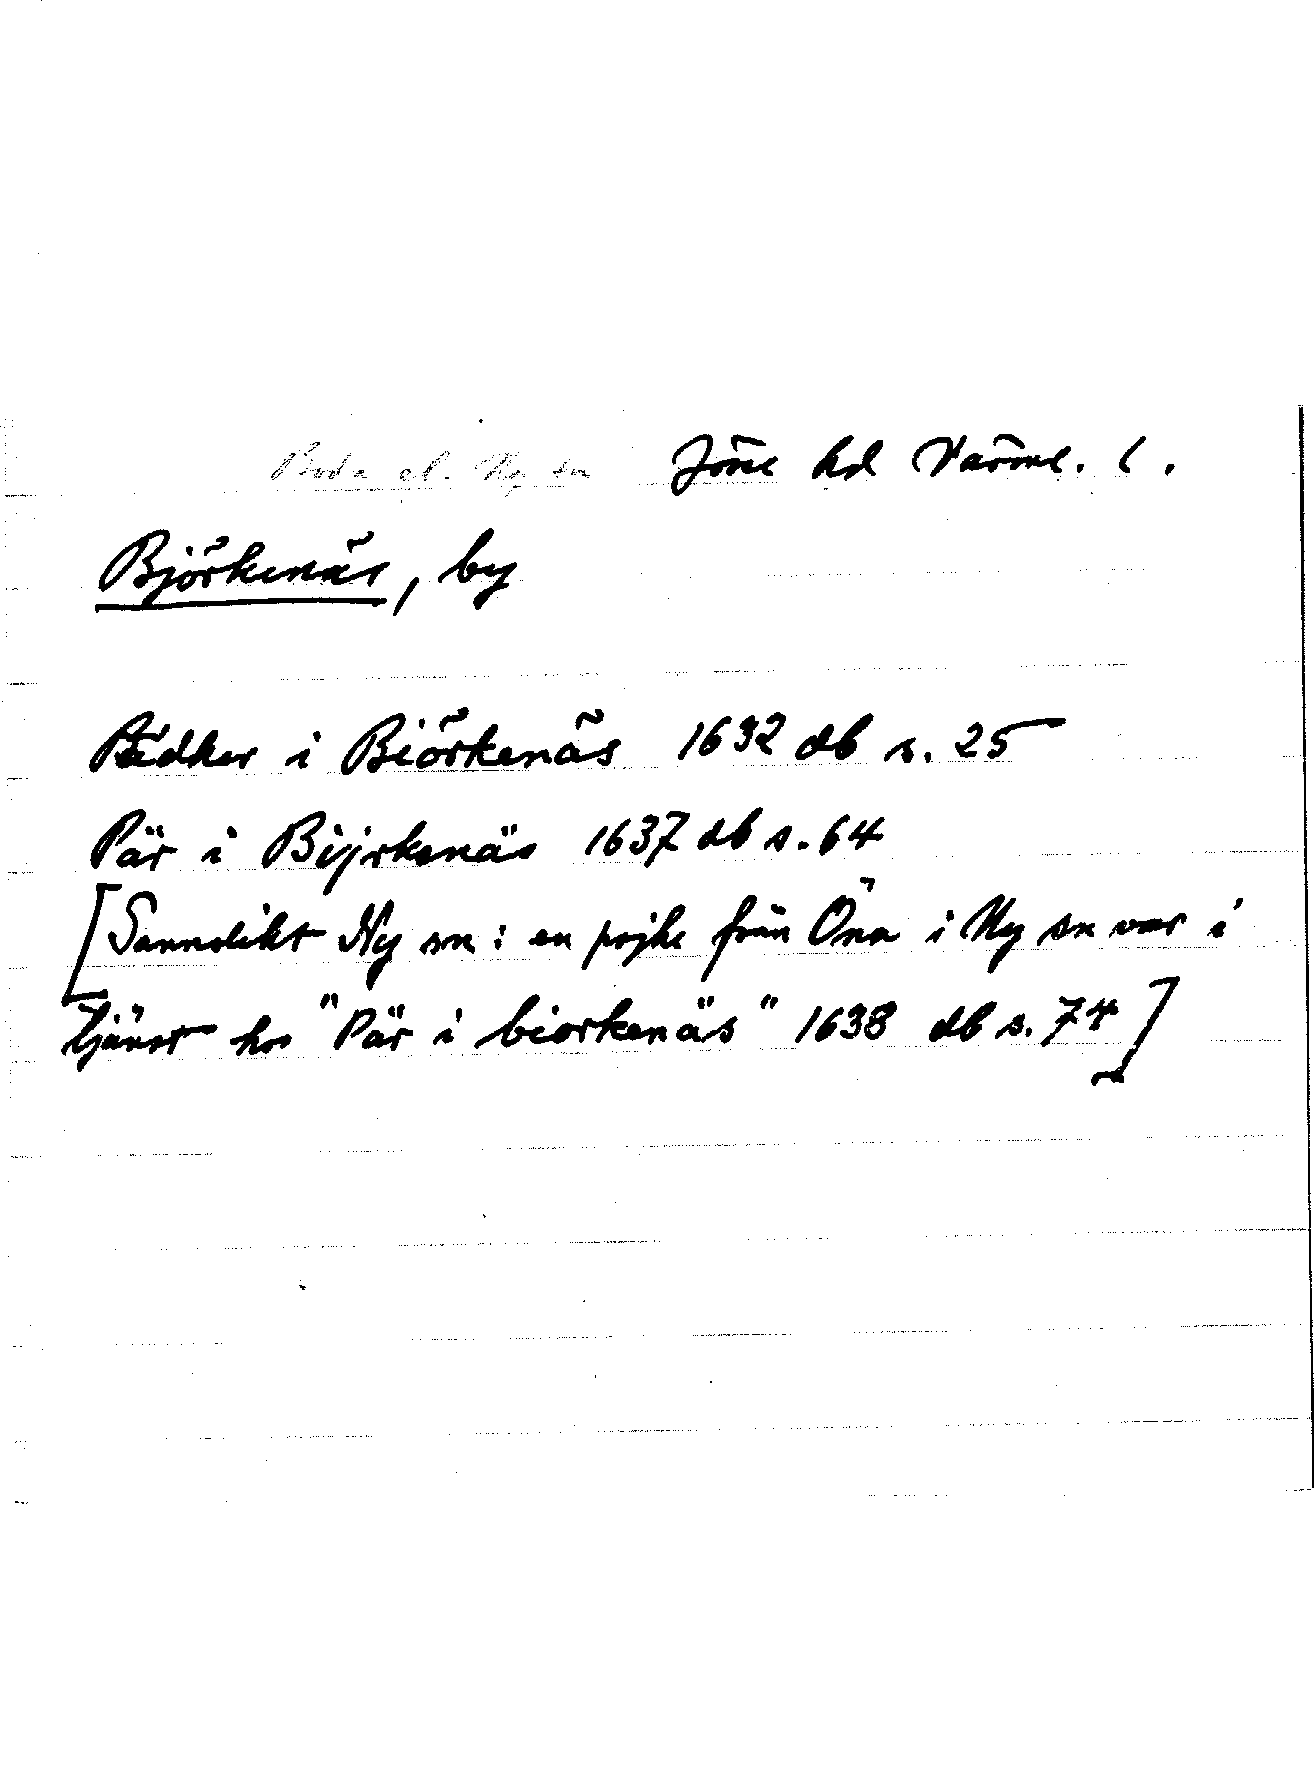 Boda el. Ny sn Jösse hd Värml. l.
Björkenäs, by
Pädher i Biörkenäs 1632 db s. 25
Pär i Bijrkenäs 1637 db s. 64
[Sannolikt Ny sn: en pojke från Öna i Ny sn var i
tjänst hos "Pär i biorkenäs" 1638 db s. 74]